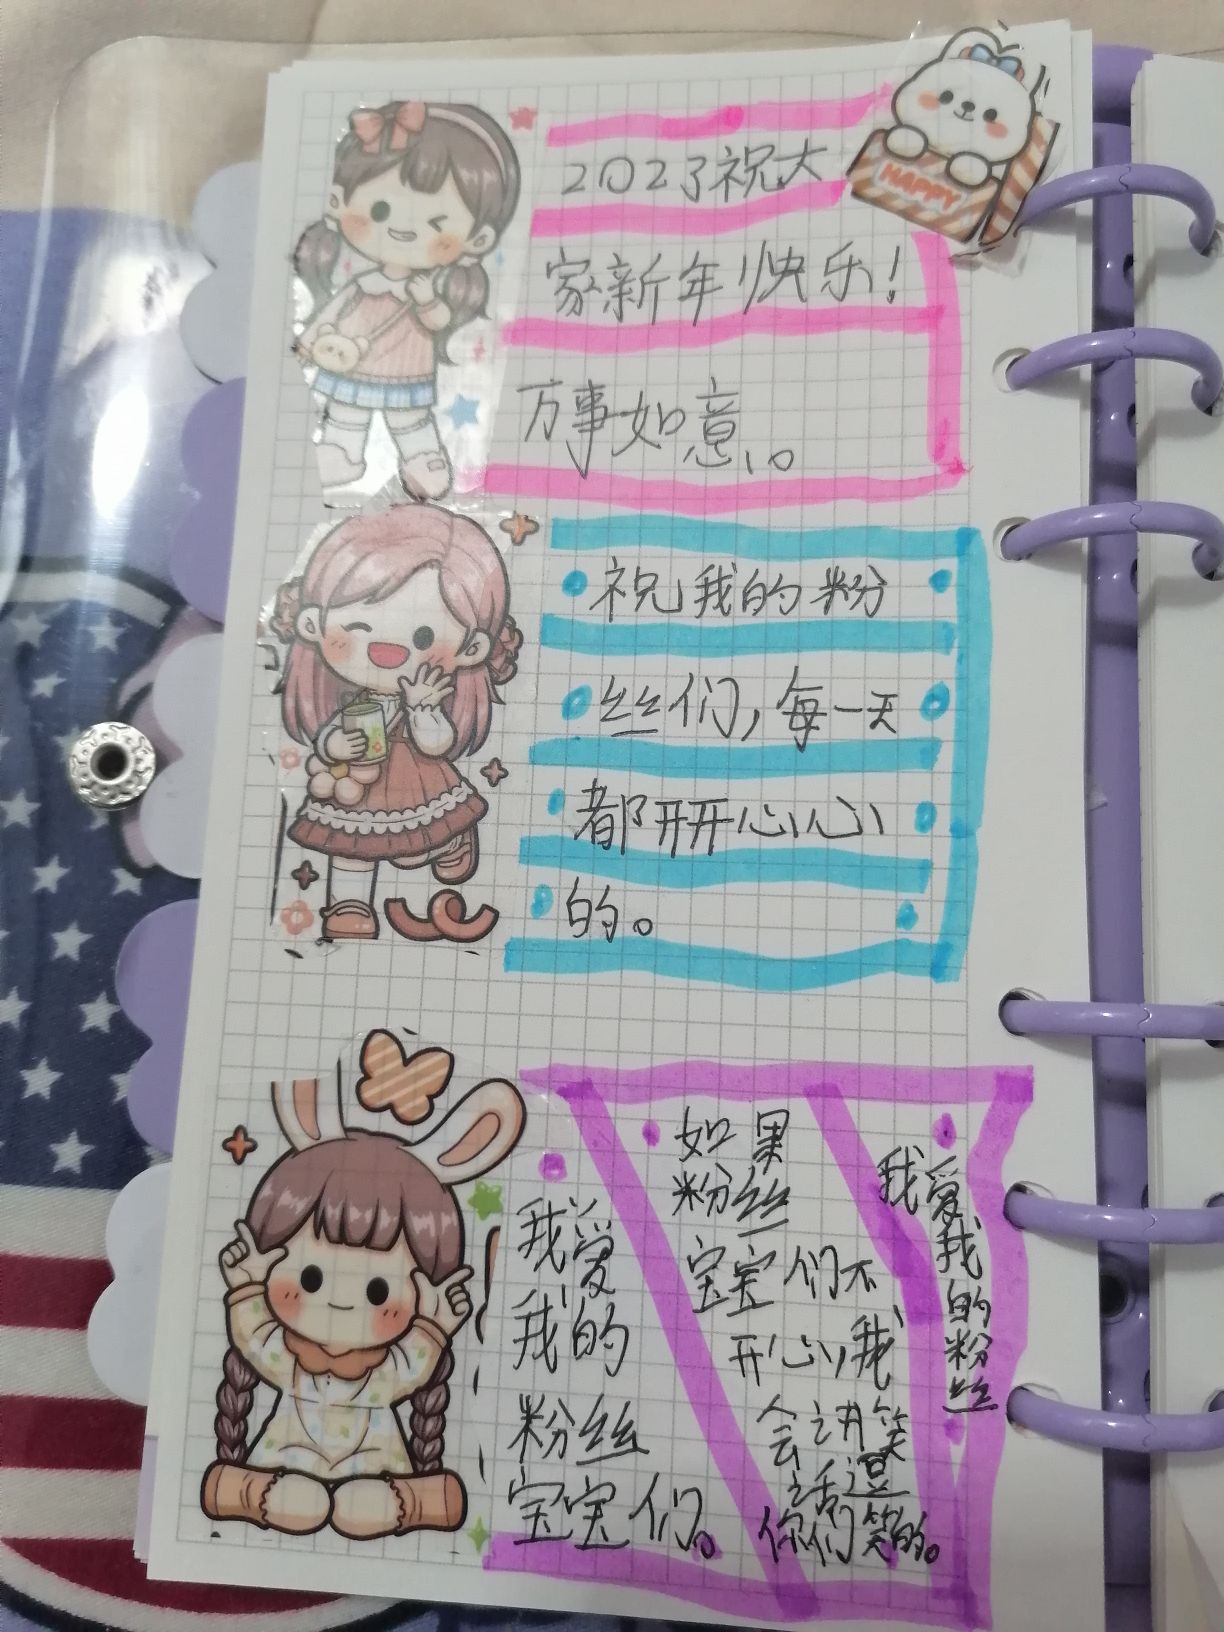 HAPPY
2023祝大
家新年快乐！
万事如意。
祝我的粉
丝们，每一天
都开开心心
的。
我爱
我的
粉丝
宝宝们。
如果
粉丝
宝宝们不
开心，我
会讲笑
话逗
你们笑的。
我爱
我
的
粉
丝